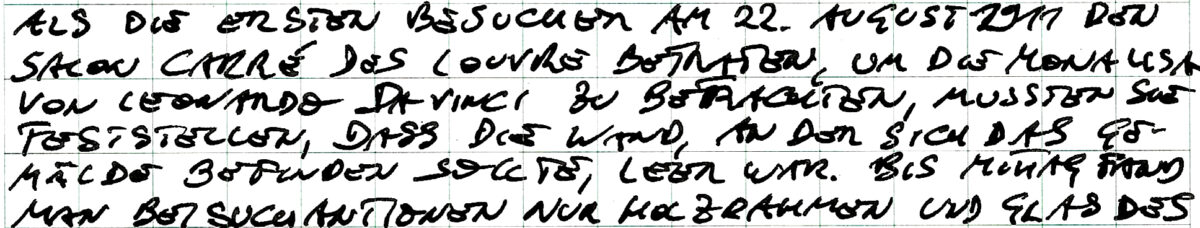 ALS DIE ERSTEN BESUCHER AM 22. AUGUST 1911 DEN
SALON CARRÉ DES LOUVRE BETRATEN, UM DIE MONA LISA
VON LEONARDO DA VINCI ZU BETRACHTEN, MUSSTEN SIE
FESTSTELLEN, DASS DIE WAND, AN DER SICH DAS GE-
MÄLDE BEFINDEN SOLLTE, LEER WAR. BIS MITTAG FAND
MAN BEI SUCHAKTIONEN NUR HOLZRAHMEN UND GLAS DES